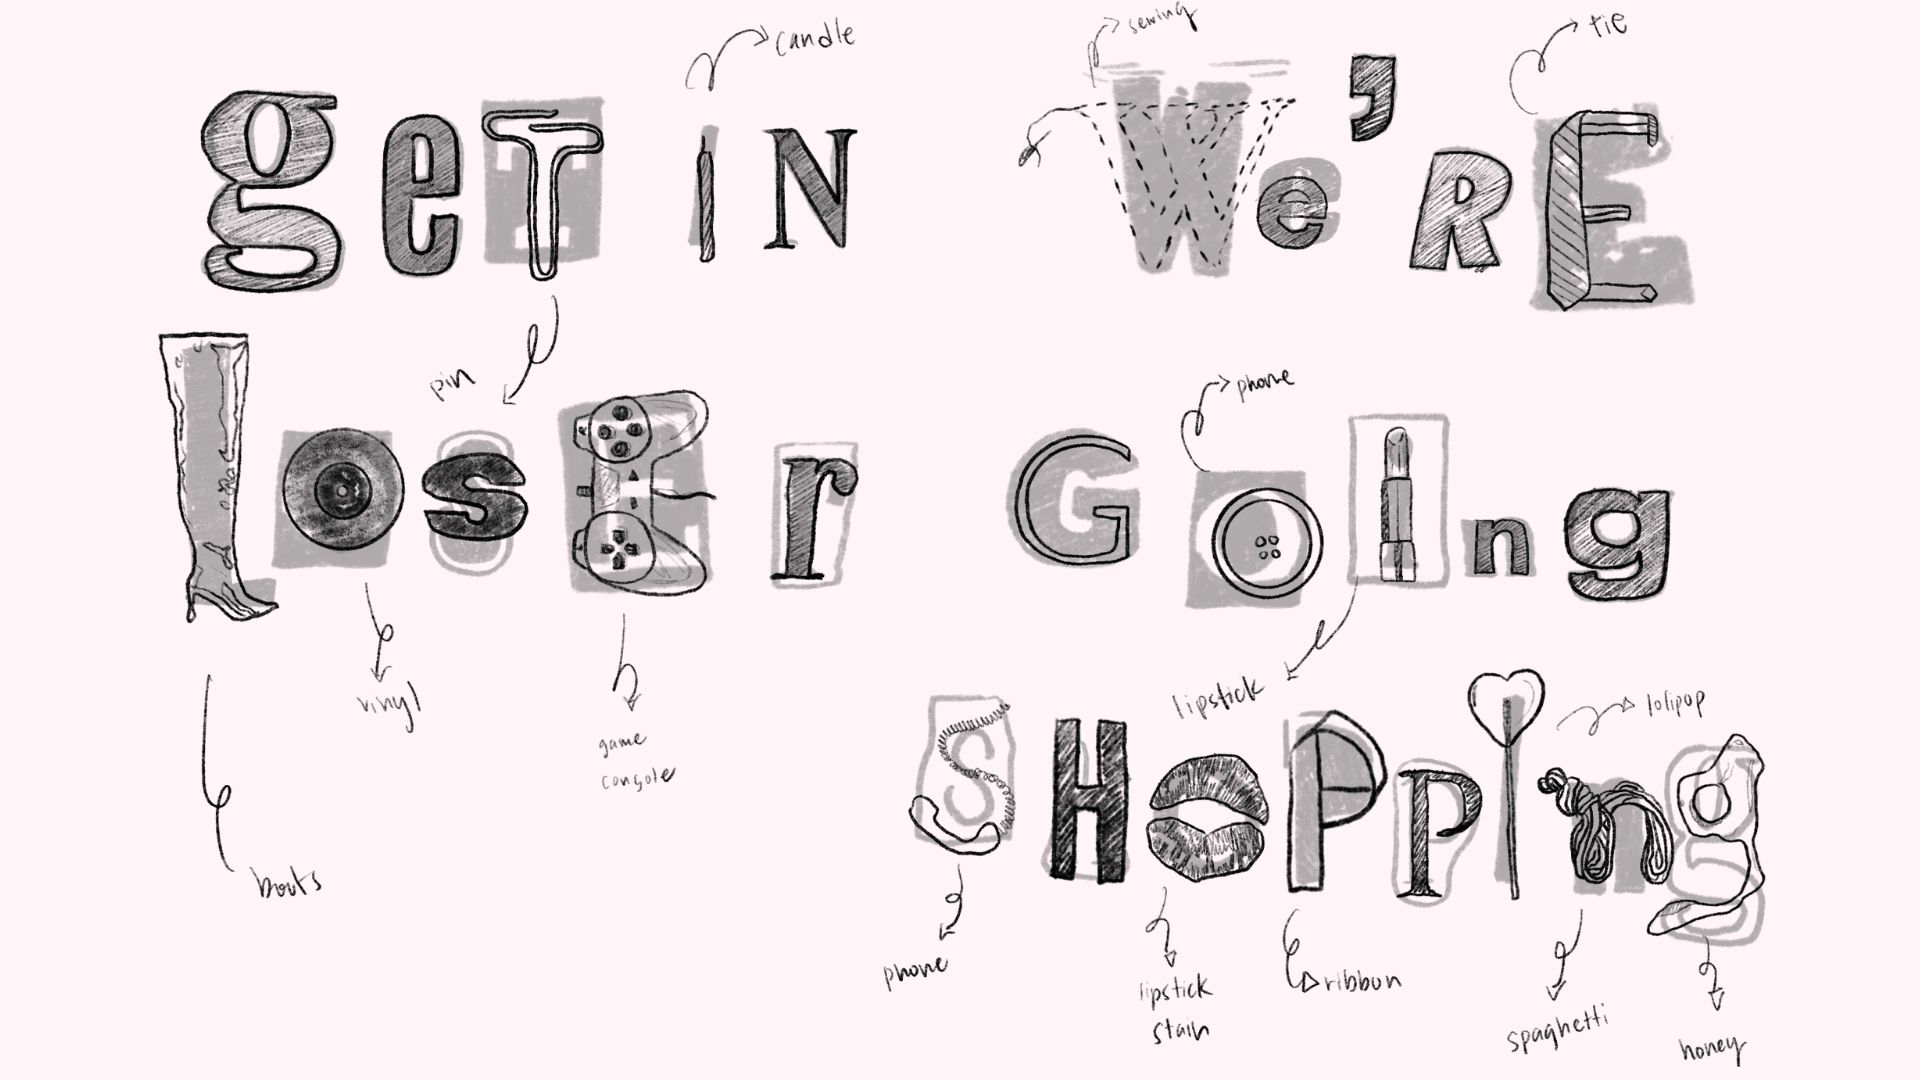 candle
geT IN
pin
losEr
vinyl
game
console
boots
sewing
tie
We'RE
phone
GoIng
lipstick
lolipop
SHOPPIng
phone
lipstick
stain
ribbon
spaghetti
honey